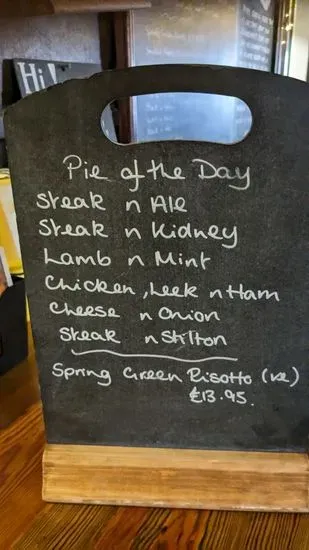 Hi!
Pie of the Day
Steak n Ale
Steak n Kidney
Lamb n Mint
Chicken, Leek n Ham
Cheese n Onion
Steak n Stilton
Spring Green Risotto (ve)
£13.95.